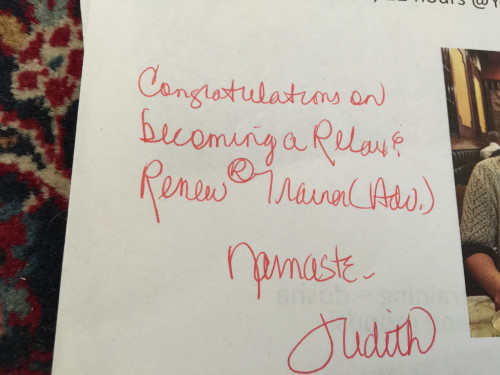 hours @Y
Congratulations on
becoming a Relax &
Renew ® Trainer (Adv.)
Namaste -
Judith